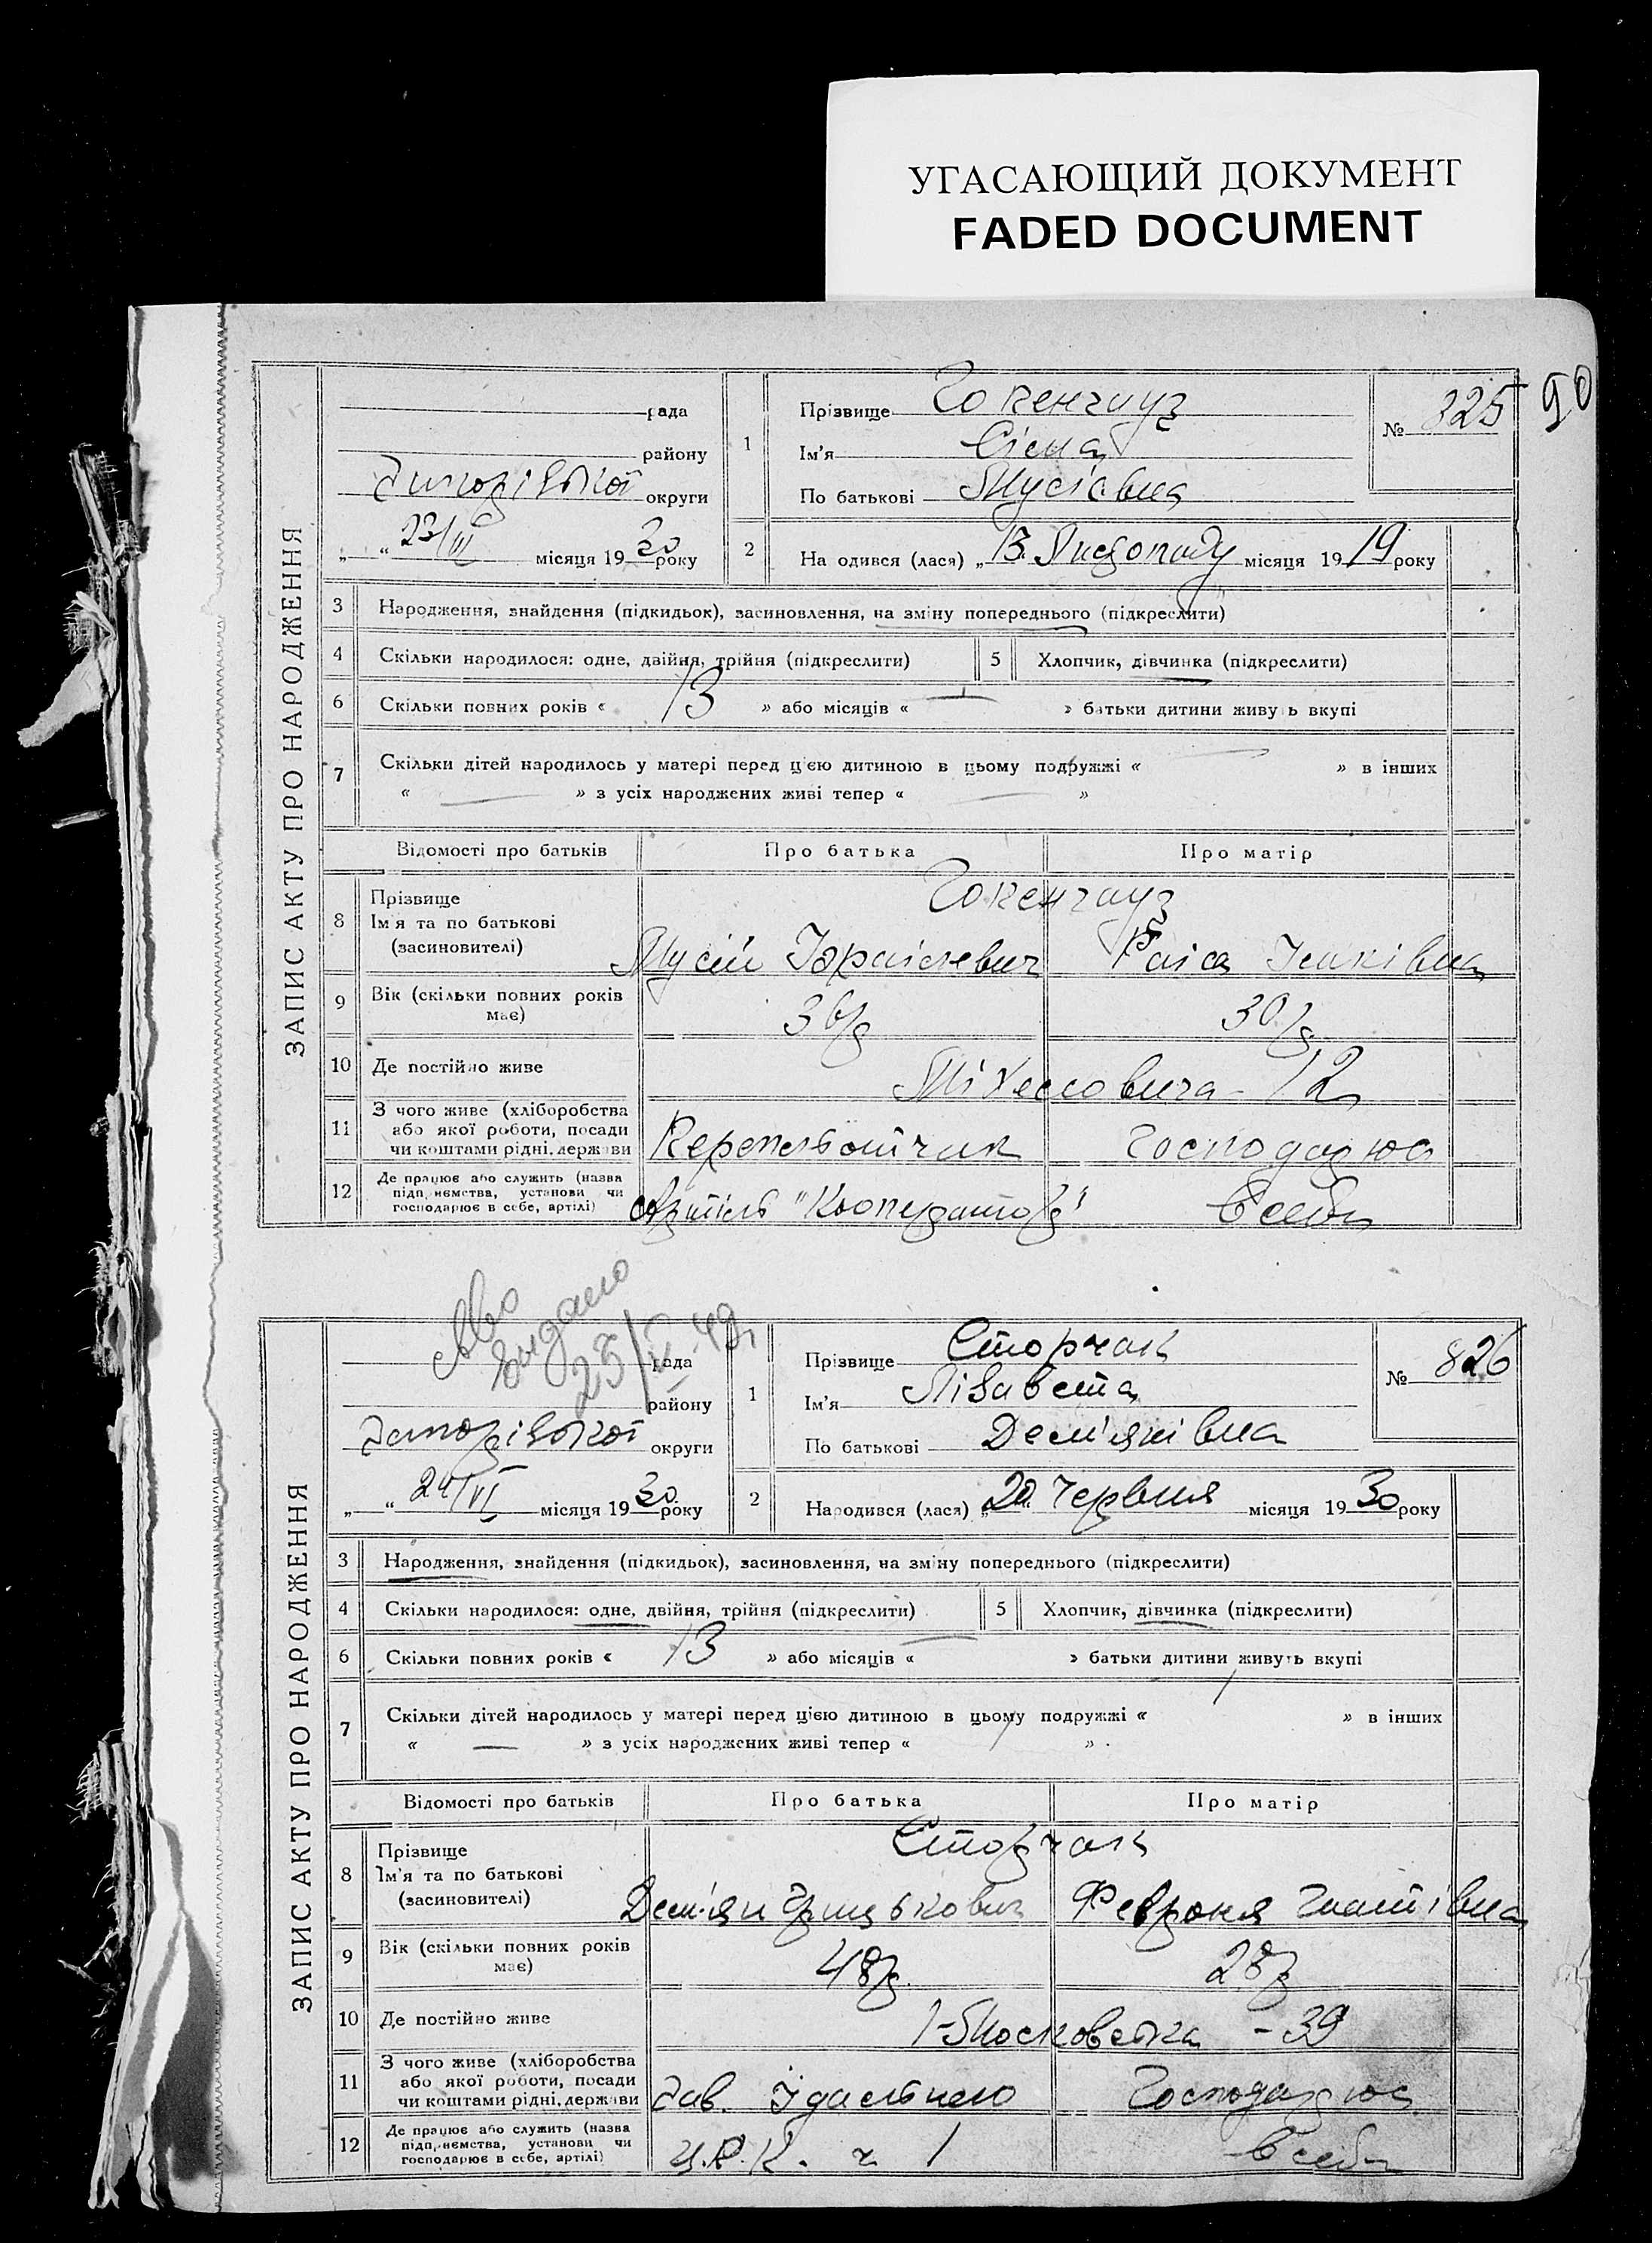 УГАСАЮЩИЙ ДОКУМЕНТ
FADED DOCUMENT
90
ЗАПИС АКТУ ПРО НАРОДЖЕННЯ
рада
району
Запорізької округи
„ “ 23/VI місяця 1930 року
1 Прізвище Гокенгауз
Ім'я Сіма
По батькові Мусіївна
№ 825
2 На одився (лася) „13 Листопаду місяця 1919 року
3 Народження, знайдення (підкидьок), засиновлення, на зміну попереднього (підкреслити)
4 Скільки народилося: одне, двійня, трійня (підкреслити) 5 Хлопчик, дівчинка (підкреслити)
6 Скільки повних років « 13 » або місяців « — » батьки дитини живу ь вкупі
7 Скільки дітей народилось у матері перед цією дитиною в цьому подружжі « — » в інших
« — » з усіх народжених живі тепер « — »
Відомості про батьків Про батька Про матір
8 Прізвище
Ім'я та по батькові
(засиновителі)
Гокенгауз
Мусій Ізраїлевич Раіса
9 Вік (скільки повних років має) 36 30
10 Де постійно живе 12
11 З чого живе (хліборобства
або якої роботи, посади
чи коштами рідні, держави
Господарює
12 Де працює або служить (назва
підприємства, установи чи
господарює в себе, артілі)
Артіль "Кооператор" В себе
видано
25/ 49
ЗАПИС АКТУ ПРО НАРОДЖЕННЯ
рада
району
Запорізької округи
„ “ 24/VI місяця 1930 року
1 Прізвище Сторчак
Ім'я Лізавета
По батькові Дем'янівна
№ 826
2 Народився (лася) „20 Червня місяця 1930 року
3 Народження, знайдення (підкидьок), засиновлення, на зміну попереднього (підкреслити)
4 Скільки народилося: одне, двійня, трійня (підкреслити) 5 Хлопчик, дівчинка (підкреслити)
6 Скільки повних років « 13 » або місяців « — » батьки дитини живуть вкупі
7 Скільки дітей народилось у матері перед цією дитиною в цьому подружжі « 1 » в інших
« — » з усіх народжених живі тепер « 1 »
Відомості про батьків Про батька Про матір
8 Прізвище
Ім'я та по батькові
(засиновителі)
Сторчак
Дем'ян Грицькович Февроня Гнатівна
9 Вік (скільки повних років має) 48 28
10 Де постійно живе 1-Московська - 39
11 З чого живе (хліборобства
або якої роботи, посади
чи коштами рідні, держави
Зав. Їдальнею Господарює
12 Де працює або служить (назва
підприємства, установи чи
господарює в себе, артілі)
Ц.Р.К. ч. 1 В себе